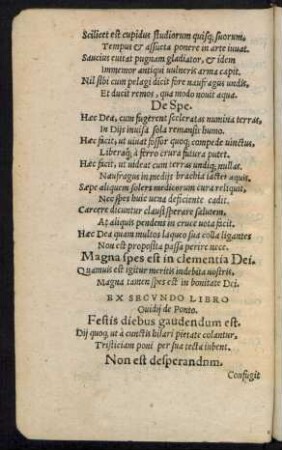 Scilicet est cupidus studiorum quisq; suorum,
Tempus & assueta ponere in arte iuuat.
Saucius euitat pugnam gladiator, & idem
Immemor antiqui uulneris arma capit.
Nil sibi cum pelagi dicit fore naufragus undis,
Et ducit remos, qua modo nouit aqua.
De Spe.
Hæc Dea, cum fugerent sceleratas numina terras,
In Dijs inuisa sola remansit humo.
Hæc facit, ut uiuat fossor quoq; compede uinctus,
Liberaq; à ferro crura futura putet.
Hæc facit, ut uideat cum terras undiq; nullas,
Naufragus in medijs brachia iactet aquis.
Sæpe aliquem solers medicorum cura reliquit,
Nec spes huic uena deficiente cadit.
Carcere dicuntur clausi sperare salutem,
At aliquis pendens in cruce uota facit.
Hæc Dea quam multos laqueo sua colla ligantes
Non est proposita passa perire nece.
Magna spes est in clementia Dei.
Quamuis est igitur meritis indebita nostris,
Magna tamen spes est in bonitate Dei.
EX SECVNDO LIBRO
Ouidij de Ponto.
Festis diebus gaudendum est.
Dij quoq; ut à cunctis hilari pietate colantur,
Tristiciam poni per sua tecta iubent.
Non est desperandum.
Confugit